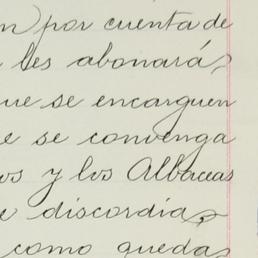 por cuenta de
les abonará,
que se encarguen
se convenga
y los Albaceas
discordia,
como queda